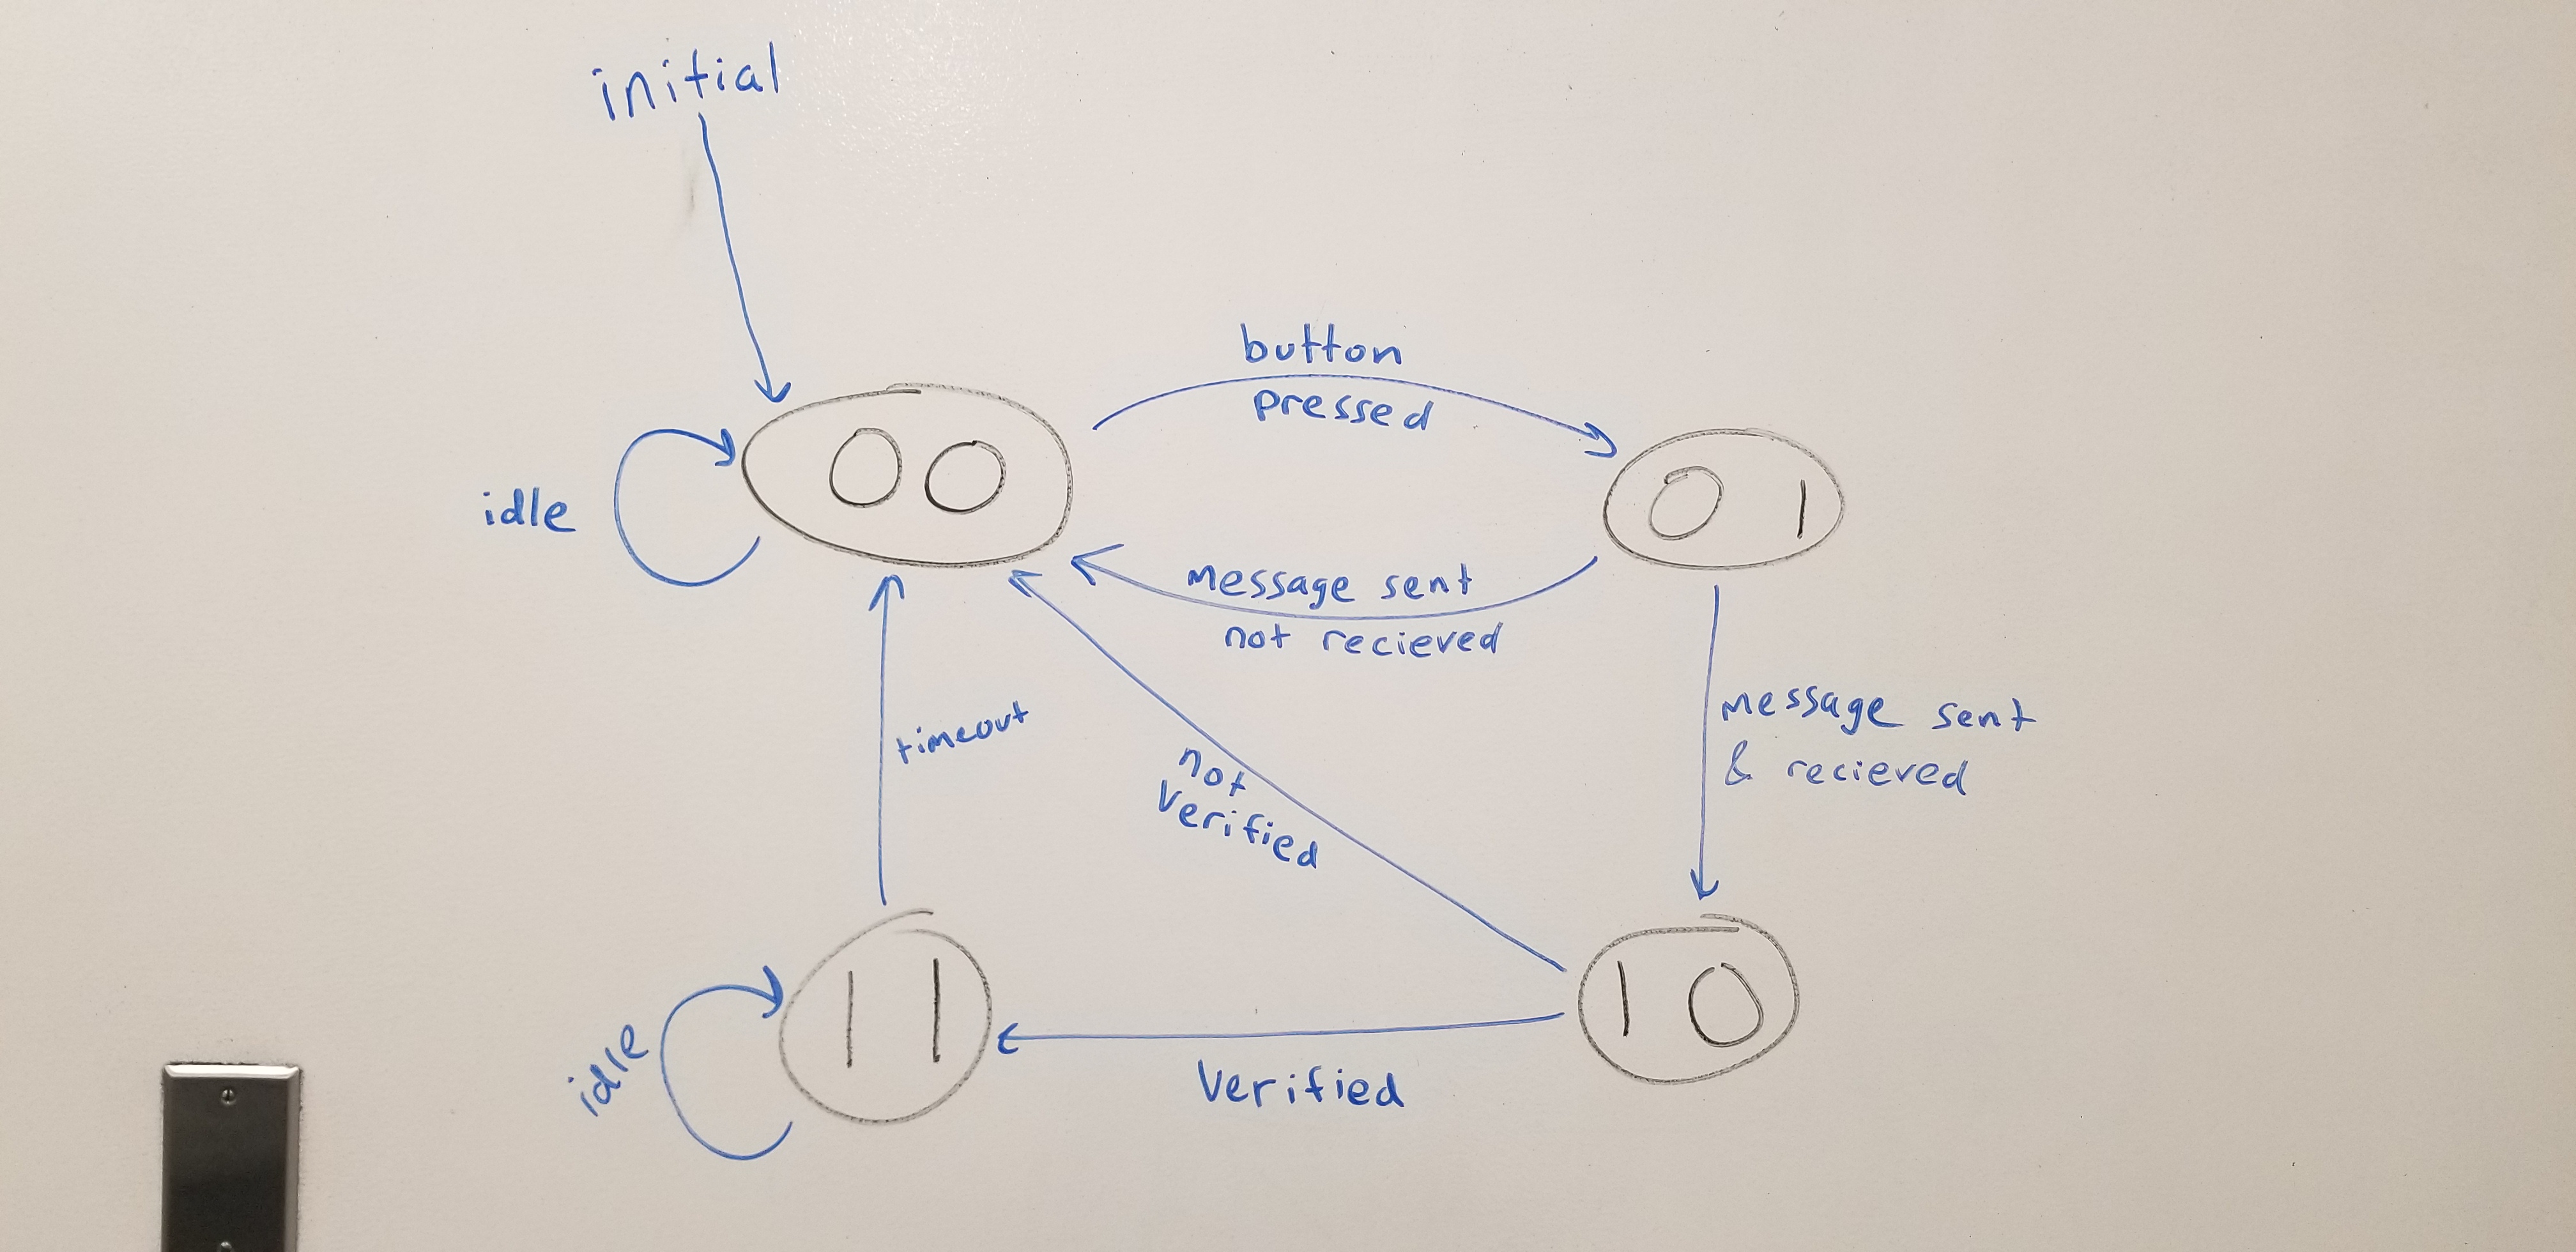 initial
button
pressed
00
01
idle
message sent
not recieved
message sent
& recieved
timeout
not
verified
11
10
idle
Verified